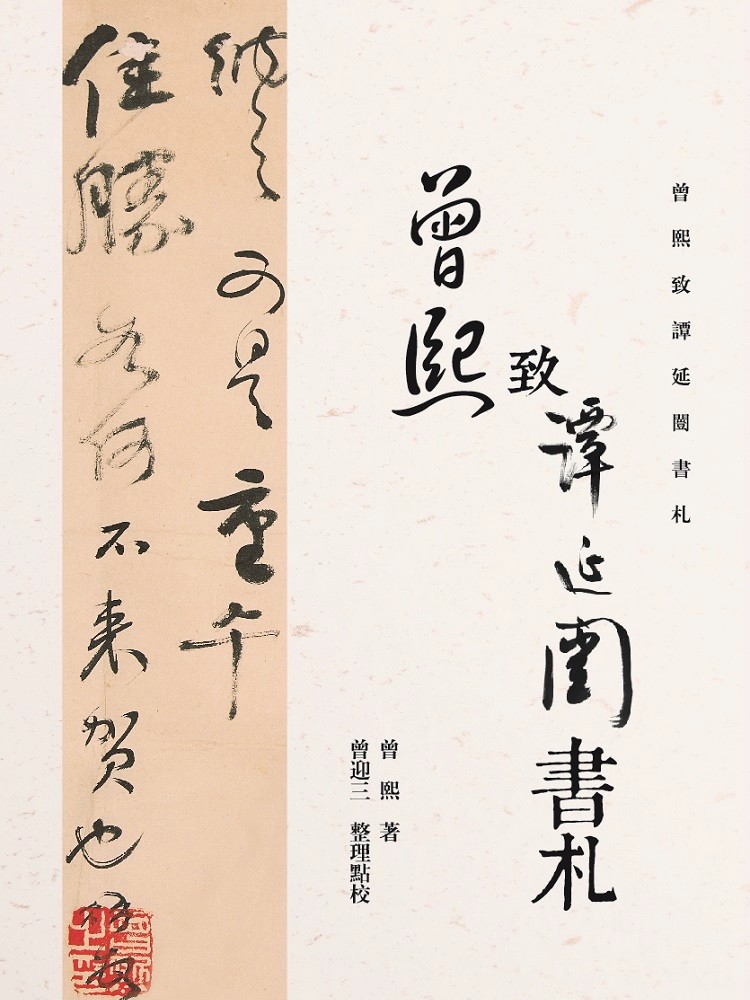 曾熙致譚延闓書札
曾熙致譚延闓書札
曾熙著
曾迎三 整理點校
可是重午
佳勝 何不来贺也
曾熙之印